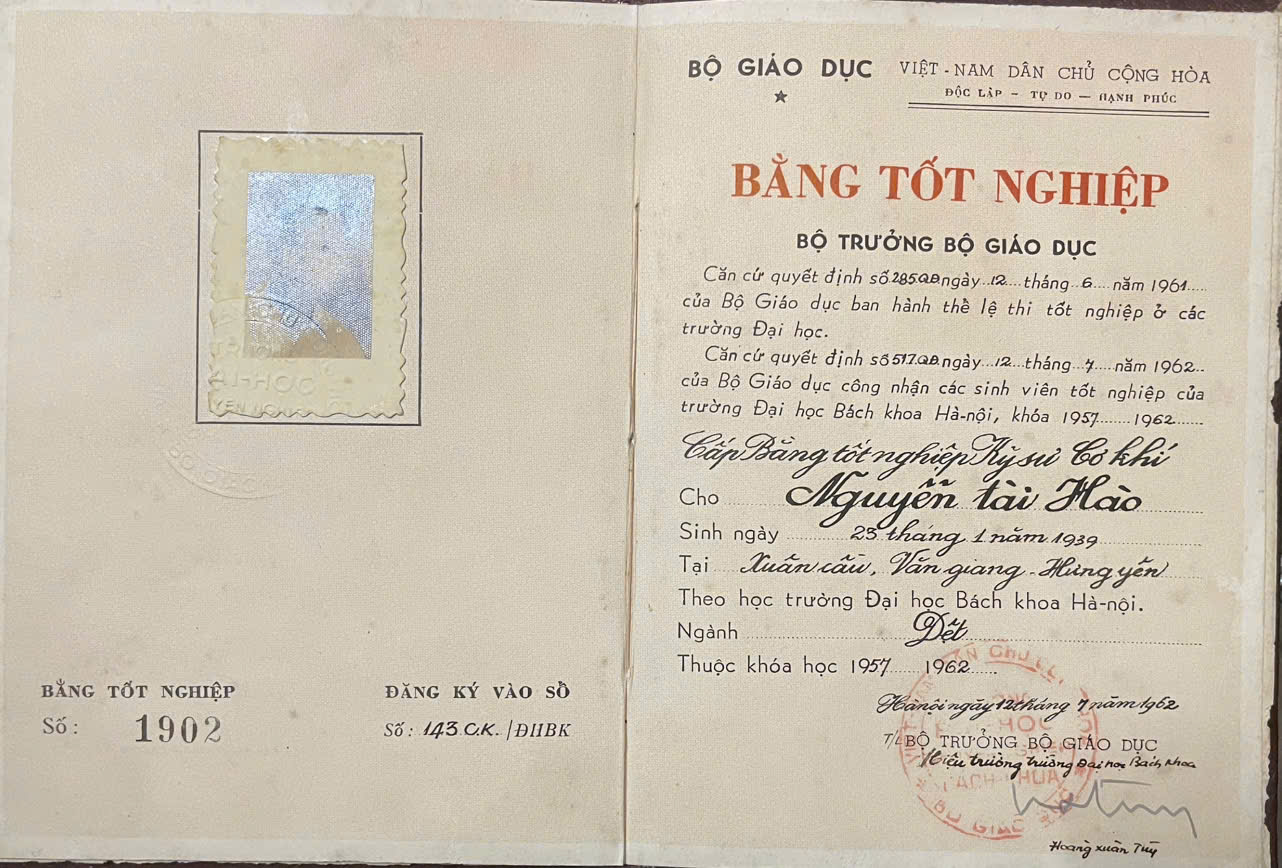 BẰNG TỐT NGHIỆP
Số: 1902
ĐĂNG KÝ VÀO SỔ
Số: 143 C.K. /ĐHBK
BỘ GIÁO DỤC
VIỆT-NAM DÂN CHỦ CỘNG HÒA
ĐỘC LẬP - TỰ DO - HẠNH PHÚC
BẰNG TỐT NGHIỆP
BỘ TRƯỞNG BỘ GIÁO DỤC
Căn cứ quyết định số 285QĐ ngày 12 tháng 6 năm 1961
của Bộ Giáo dục ban hành thể lệ thi tốt nghiệp ở các
trường Đại học.
Căn cứ quyết định số 517QĐ ngày 12 tháng 7 năm 1962
của Bộ Giáo dục công nhận các sinh viên tốt nghiệp của
trường Đại học Bách khoa Hà-nội, khóa 1957 1962
Cấp Bằng tốt nghiệp Kỹ sư Cơ khí
Cho Nguyễn tài Hào
Sinh ngày 23 tháng 1 năm 1939
Tại Xuân cầu, Văn giang - Hưng yên
Theo học trường Đại học Bách khoa Hà-nội.
Ngành Dệt
Thuộc khóa học 1957 1962
Hà nội ngày 12 tháng 7 năm 1962
T/L BỘ TRƯỞNG BỘ GIÁO DỤC
Hiệu trưởng trường Đại học Bách khoa
Hoàng xuân Tùy